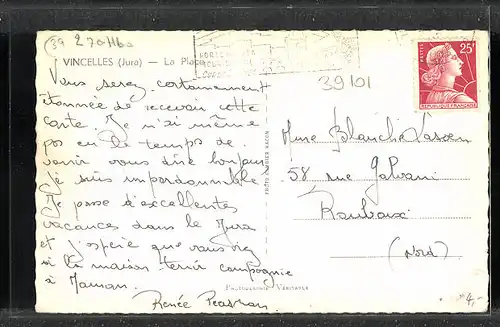 39 27046
VINCELLES (Jura) — La Place
Vous serez certainement
étonnée de recevoir cette
carte. Je n'ai même
pas eu le temps de
venir vous dire bonjour
je suis impardonnable!
Je passe d'excellentes
vacances dans le Jura
et j'espère que vous irez
à la maison tenir compagnie
à Maman.
Renée
39101
POSTES
25F
REPUBLIQUE FRANÇAISE
Mme Blanche
58 rue Galvani
Roubaix
(Nord)
4,-